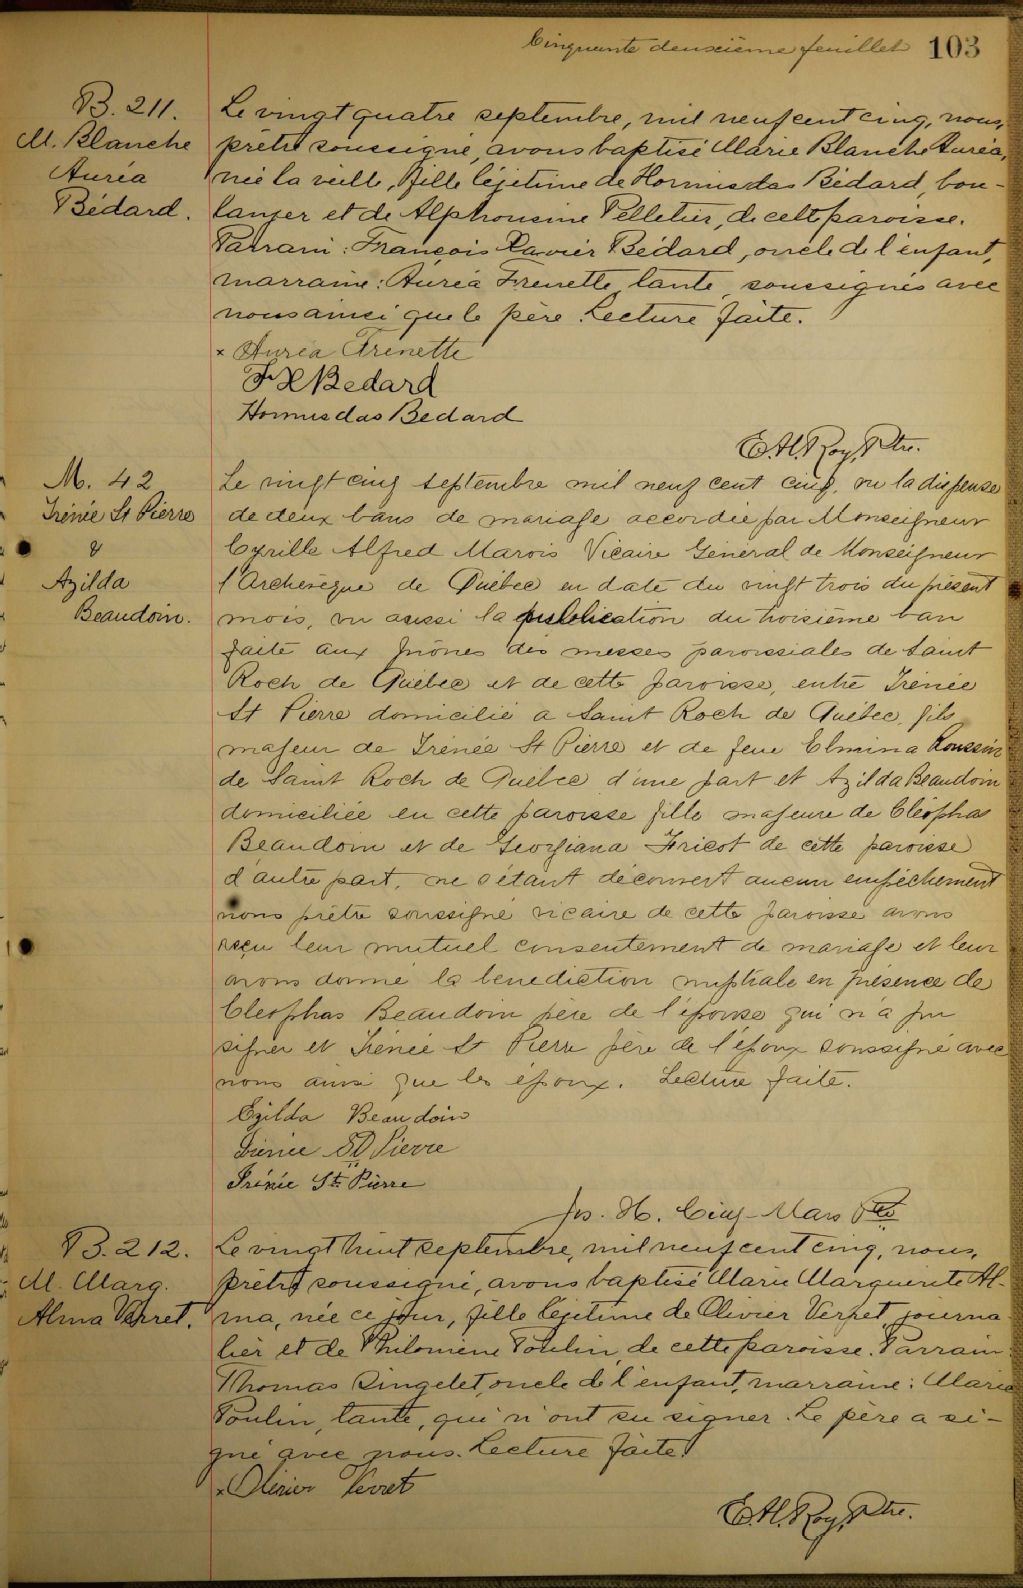 Cinquante deuxième feuillet 103
B. 211.
M. Blanche
Auréa
Bédard.
Le vingt quatre septembre, mil neuf cent cinq, nous,
prêtre soussigné, avons baptisé Marie Blanche Auréa,
née la veille, fille légitime de Hormisdas Bédard, bou-
langer et de Alphonsine Pelletier, de cette paroisse.
Parrain : François Xavier Bédard, oncle de l'enfant,
marraine : Auréa Frenette, tante, soussignés avec
nous ainsi que le père. Lecture faite.
× Auréa Frenette
F X Bedard
Hormisdas Bedard
E. H. Roy, Ptre.
M. 42
Irénée St Pierre
&
Azilda
Beaudoin.
Le vingt cinq septembre mil neuf cent cinq, vu la dispense
de deux bans de mariage accordée par Monseigneur
Cyrille Alfred Marois Vicaire Général de Monseigneur
l'Archevêque de Québec en date du vingt trois du présent
mois, vu aussi la publication du troisième ban
faite aux prônes des messes paroissiales de Saint
Roch de Québec et de cette paroisse, entre Irénée
St Pierre domicilié a Saint Roch de Québec, fils
majeur de Irénée St Pierre et de feue Elmina Roussin
de Saint Roch de Québec d'une part et Azilda Beaudoin
domiciliée en cette paroisse fille majeure de Cléophas
Beaudoin et de Georgiana Fricot de cette paroisse
d'autre part, ne s'étant découvert aucun empêchement
nous prêtre soussigné vicaire de cette paroisse avons
reçu leur mutuel consentement de mariage et leur
avons donné la bénédiction nuptiale en présence de
Cléophas Beaudoin père de l'épouse qui n'a pu
signer et Irénée St Pierre père de l'époux soussigné avec
nous ainsi que les époux. Lecture faite.
Ezilda Beaudoin
Irénée St Pierre
Irénée St. Pierre
Jos. H. Cinq-Mars Ptre
B. 212.
M. Marg.
Alma Verret.
Le vingt huit septembre, mil neuf cent cinq, nous,
prêtre soussigné, avons baptisé Marie Marguerite Al-
ma, née ce jour, fille légitime de Olivier Verret, journa-
lier et de Philomène Poulin, de cette paroisse. Parrain :
Thomas Singelet, oncle de l'enfant, marraine : Marie
Poulin, tante, qui n'ont su signer. Le père a si-
gné avec nous. Lecture faite.
× Olivier Verret
E. H. Roy, Ptre.